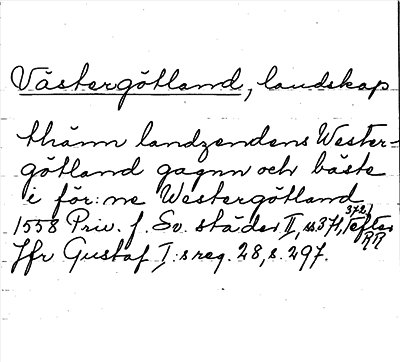 Västergötland, landskap
thänn landzendens Wester-
götland gagnn och bäste
i för:ne Westergötland
1558 Priv. f. Sv. städer II, ss. 371, 372, efter RR
Jfr Gustaf I:s reg. 28, s. 297.